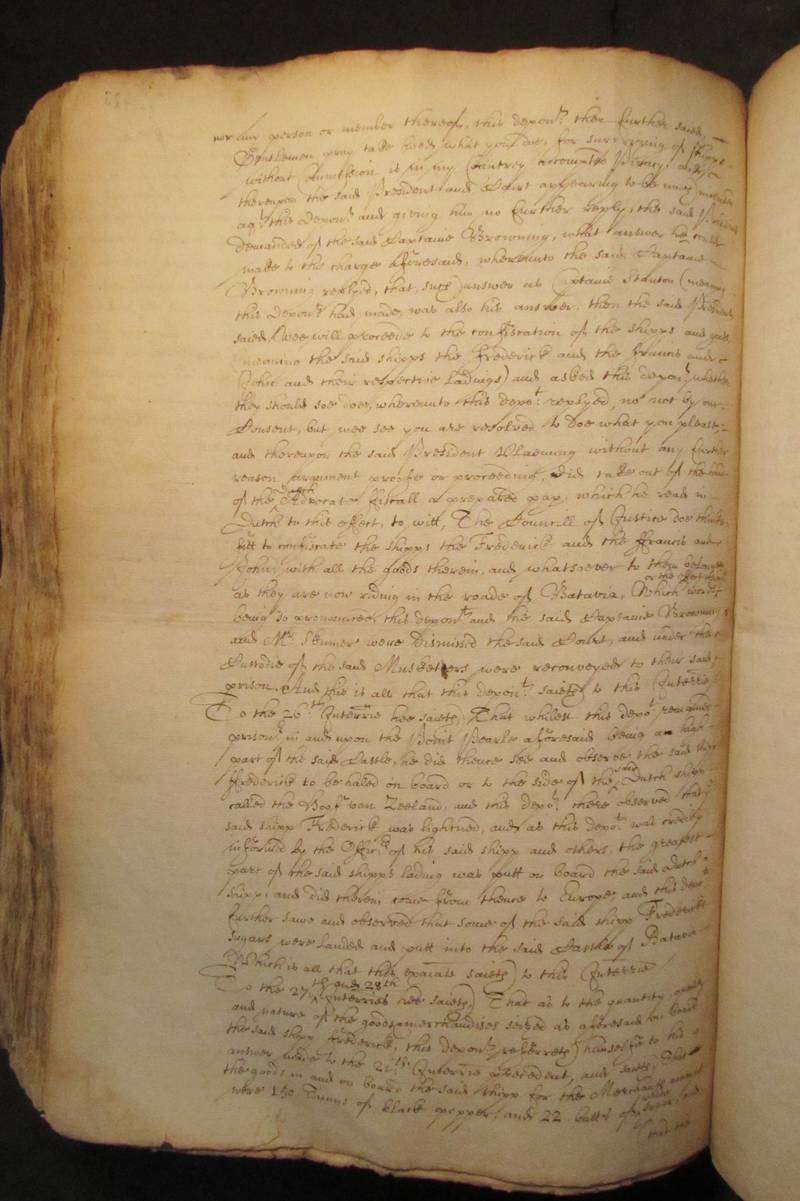 nor any person or member thereof, this depon.t then further saied,
Gentlemen pray take heed what you doe, for surprizing of shipps
without Comission is in my Countrey accompted Piracy, and
thereupon the said President and Court appearing to be much incensed
ag.t this depon.t and giving him no further reply, the said President
demanded of the said Captaine Browning, what answer hee could
make to the charge aforesaid, whereunto the said Captaine
Browning replyed, that, such answer as Captaine Stanton (meaning
this depon.t) had made, was also his answer, then the said President
saied (wee will proceede to the confiscation of the shipps and goods
meaning the said shipps the Frederick and the Francis and
John and their respective ladings) and asked this depon.t whether
they should soe doe, whereunto this depo.t replyed, no not by our
Consent, but wee see you are resolved to doe what you please,
and thereupon the said President Claening without any further
reason argument proofe or proceeding, did take out of the
of the Advocate Fiscall a prepared pap.r, which he read in
Dutch to this effect, to witt, The Councell of Justice doe thinke
fitt to confiscate the shipps the Frederick and the Francis and
John, with all the goods therein, and whatsoever to them belongeth
or the effect thereof
as they are now riding in the roade of Batavia, Which words
being so pronounced, this depon.t and the said Captaine Browning
and M.r Skinner were dismissed the said Court, and under the
Custodie of the said Musketiers were reconveyed to their said
prison. And this is all that this depon.t saieth to this Interrie
To the 26.th Interrie hee saieth, That whilest this depo.t remained
prison.r in and upon the Point Pearle aforesaid being a high
part of the said Castle, he did thence see and observe the said shipp
Frederick to be haled on board or to the side of the said Dutch shipp
called the Hoof van Zeeland, and this depo.t there observed that the
said shipp Frederick was lightned, and as this depo.t was credibly
informed by the Offic.rs of his said shipp and others, the greatest
part of the said shipps lading was putt on board the said Dutch
shipp, and did therein come from thence to Europe, and this depo.t
further sawe and observed that some of the said shipp Fredericks
sugars were landed and putt into the said Castle of Batavia
Which is all that this examate saieth to this Interrie
To the 27.th and 28th Interries hee saieth, That as to the quantity quality
and nature of the goods and merchandises seized as aforesaid on board
the said shipp Frederick, this depon.t referreth himselfe to his
answer made to the 21.th Interrie precedent, and saieth, that
the goods in and on board the said shipp for the Merchants
were 150 Tunns of black pepper, and 22 butts of